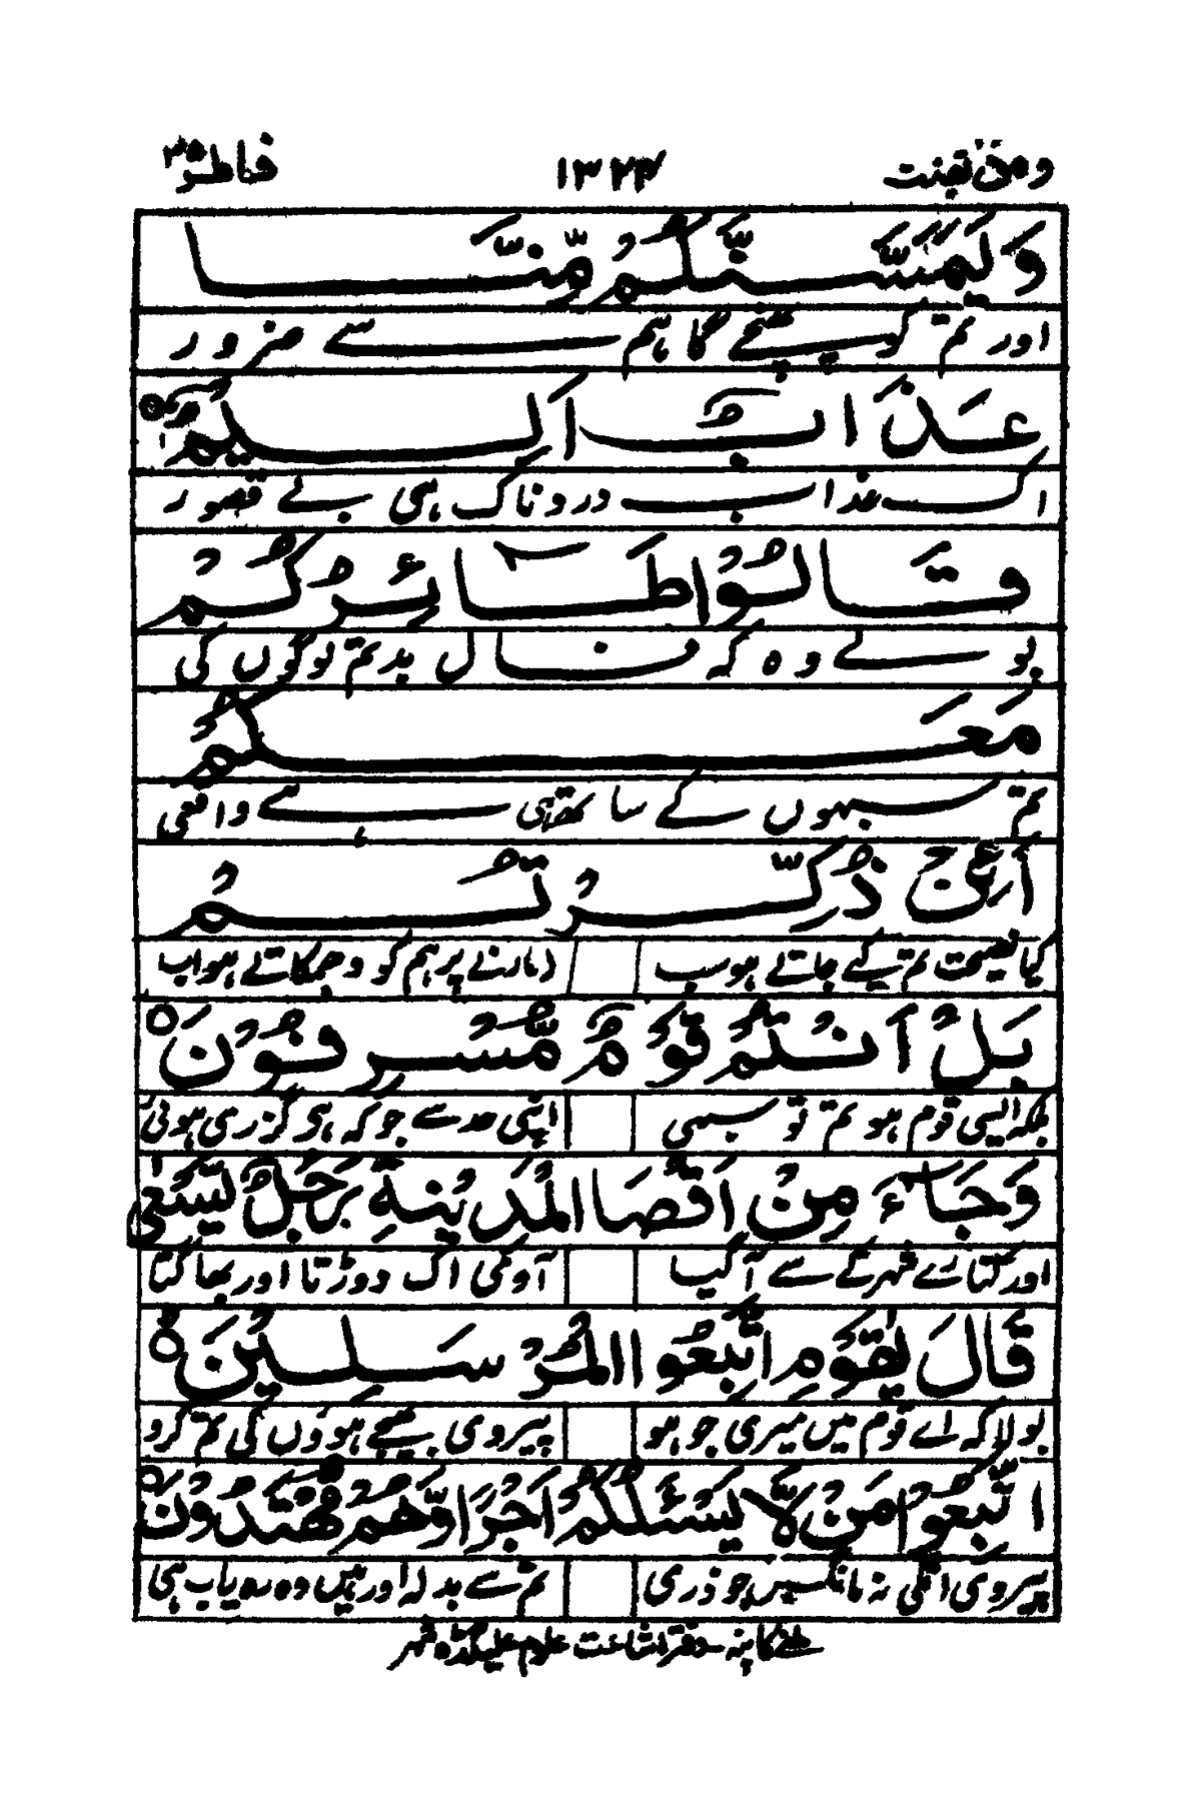 ومن یقنت ۲۲ ۱۳۲۴ فاطر ۳۵
وَلَیَمَسَّنَّكُمْ مِّنَّا
اور تم کو پہنچے گا ہم سے ضرور
عَذَابٌ اَلِیْمٌ
اک عذاب دردناک ہی بے قصور
قَالُوْا طَآئِرُكُمْ
بولے وہ کہ فال بد تم لوگوں کی
مَعَكُمْ
تم سبہوں کے ساتھ ہی ہے واقعی
اَئِنْ ذُكِّرْتُمْ
کیا نصیحت تم کیے جاتے ہو سب
مارنے پر ہم کو دھمکاتے ہو اب
بَلْ اَنْتُمْ قَوْمٌ مُّسْرِفُوْنَ
بلکہ ایسی قوم ہو تم تو سبھی
اپنی حد سے جو کہ ہو گزری ہوئی
وَجَآءَ مِنْ اَقْصَا الْمَدِیْنَةِ رَجُلٌ یَّسْعٰی
اور کنارے شہر کے سے آ گیا
آدمی اک دوڑتا اور بھاگتا
قَالَ یٰقَوْمِ اتَّبِعُوا الْمُرْسَلِیْنَ
بولا کہ اے قوم میں میری جو ہو
پیروی بھیجے ہوؤں کی تم کرو
اتَّبِعُوْا مَنْ لَّا یَسْئَلُكُمْ اَجْرًا وَّهُمْ مُّهْتَدُوْنَ
پیروی انکی نہ مانگیں جو ذری
تم سے بدلہ اور ہیں وہ رہ یاب ہی
ملنے کا پتہ - دفتر اشاعت علوم علیگڈہ شہر